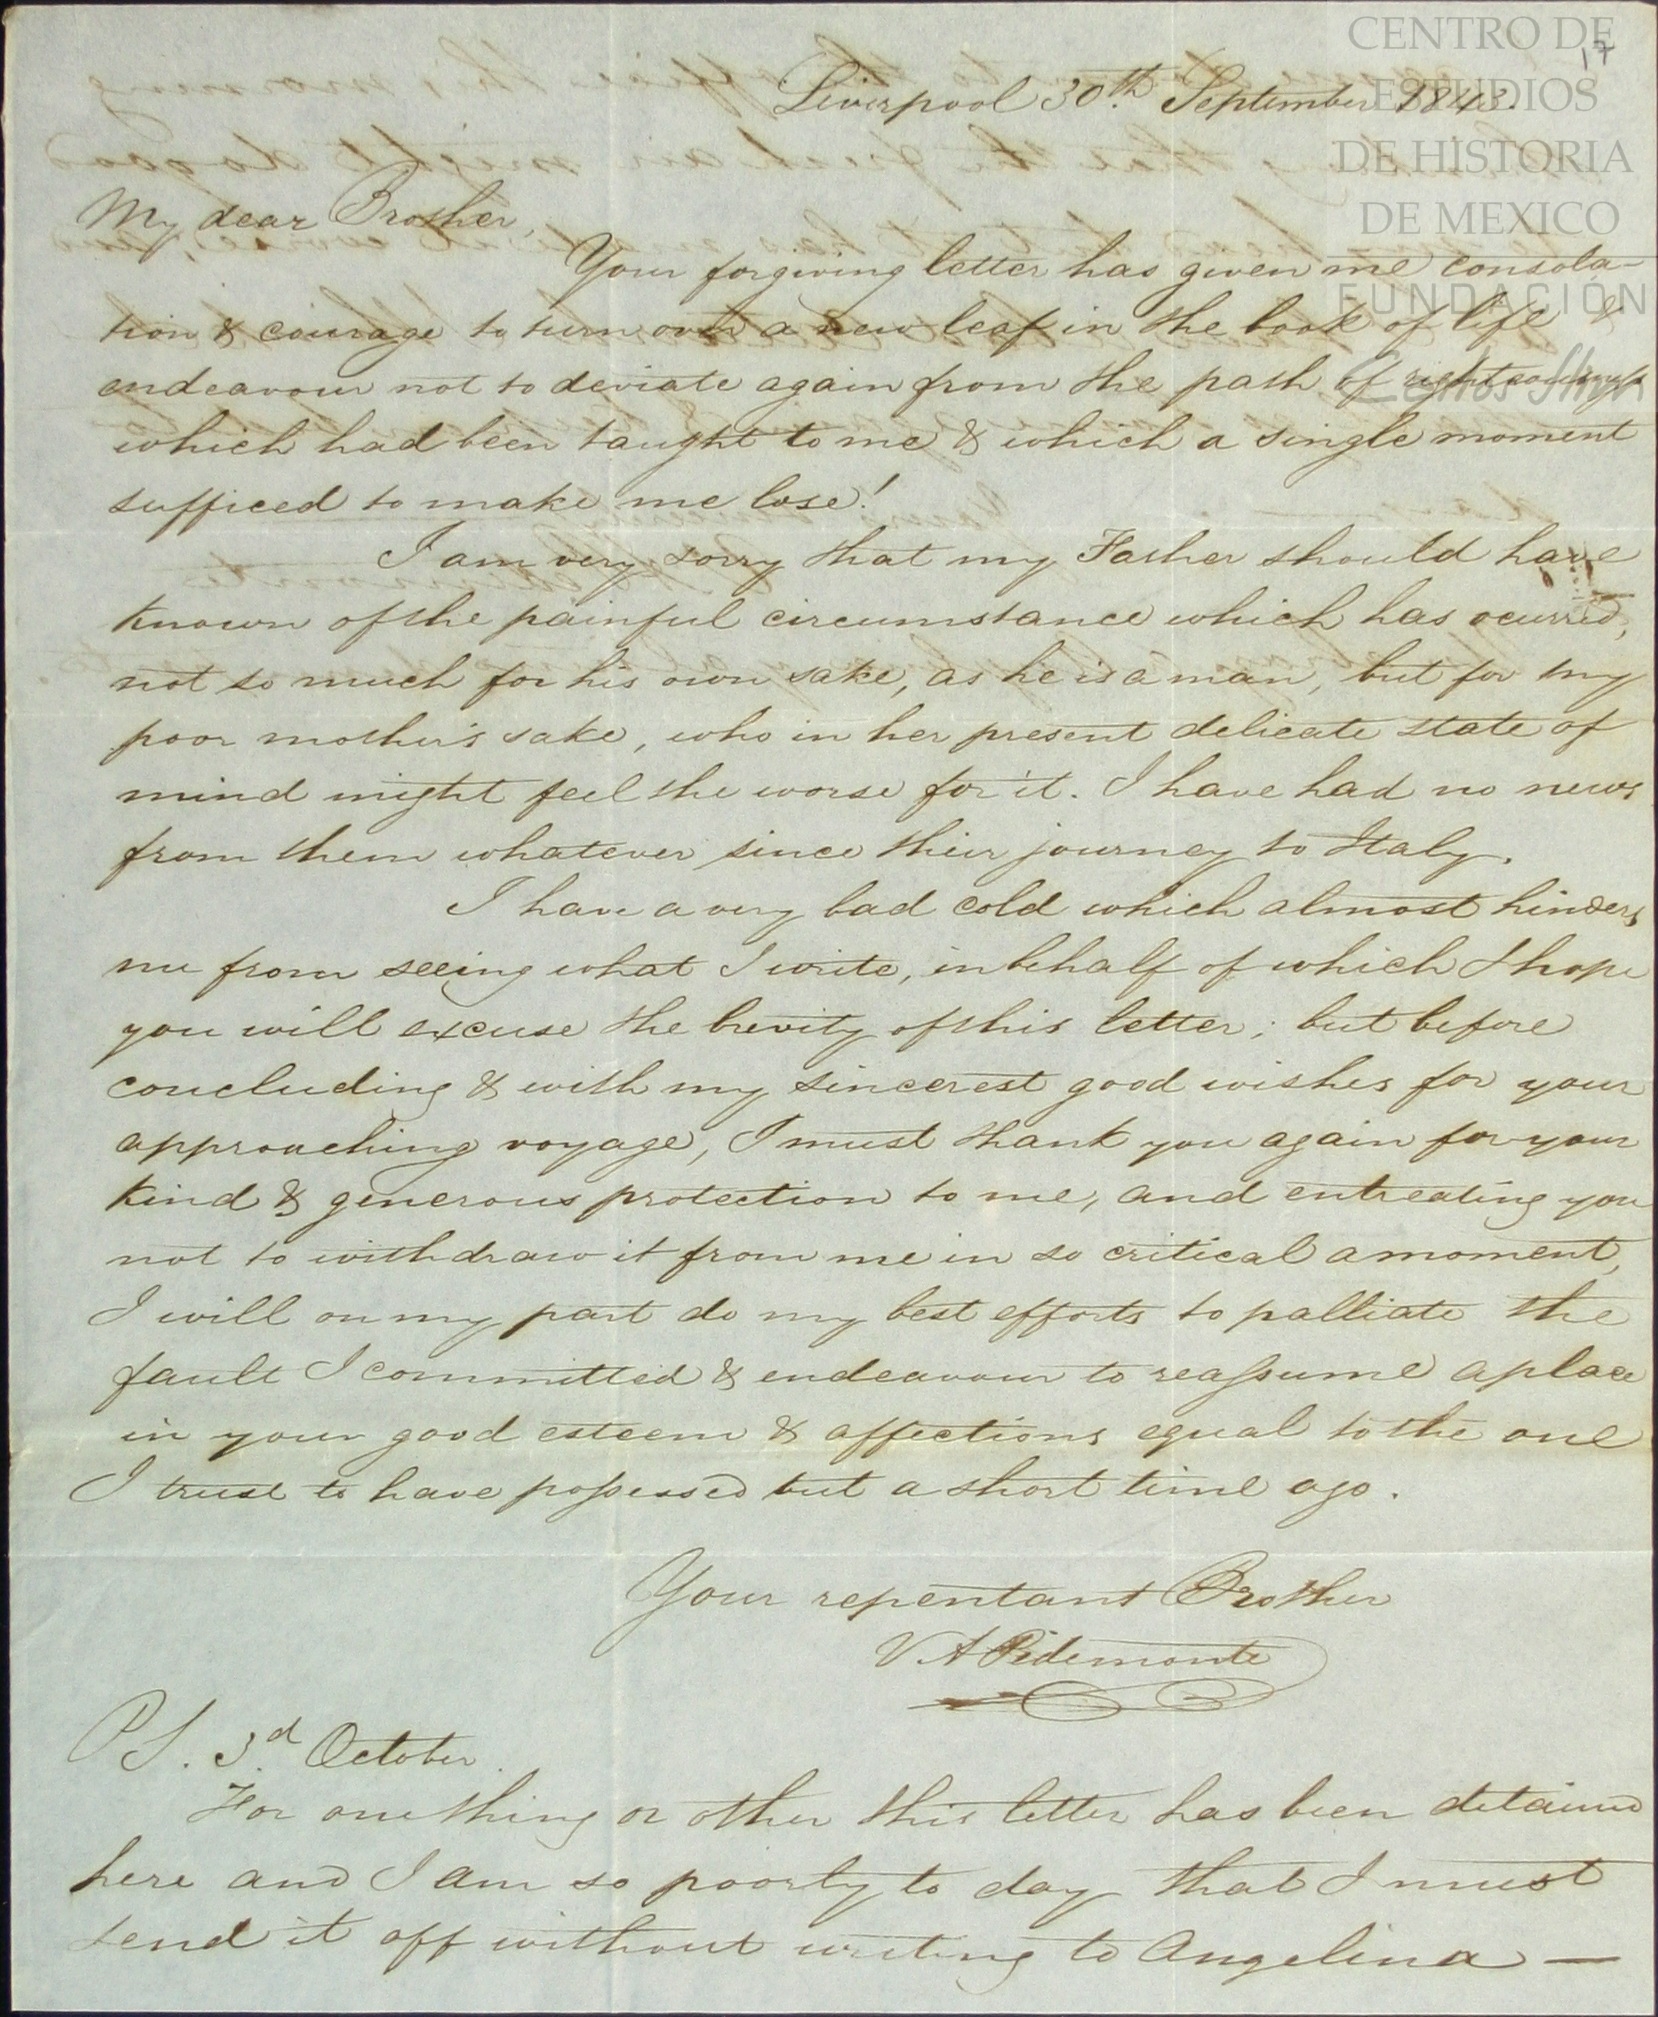 CENTRO DE
ESTUDIOS
DE HISTORIA
DE MEXICO
FUNDACIÓN
Carlos Slim
17
Liverpool 30th September 1843.
My dear Brother,
Your forgiving letter has given me consola-
tion & courage to turn over a new leaf in the book of life &
endeavour not to deviate again from the path of righteousness
which had been taught to me & which a single moment
sufficed to make me lose!
I am very sorry that my Father should have
known of the painful circumstance which has ocurred,
not so much for his own sake, as he is a man, but for my
poor mother's sake, who in her present delicate state of
mind might feel the worse for it. I have had no news
from them whatever since their journey to Italy.
I have a very bad cold which almost hinders
me from seeing what I write, in behalf of which I hope
you will excuse the brevity of this letter; but before
concluding & with my sincerest good wishes for your
approaching voyage, I must thank you again for your
kind & generous protection to me, and entreating you
not to withdraw it from me in so critical a moment,
I will on my part do my best efforts to palliate the
fault I committed & endeavour to reassume a place
in your good esteem & affections equal to the one
I trust to have possessed but a short time ago.
Your repentant Brother
V. A Pidemonte
PS. 3d October.
For one thing or other this letter has been detained
here and I am so poorly to day that I must
send it off without writing to Angelina —